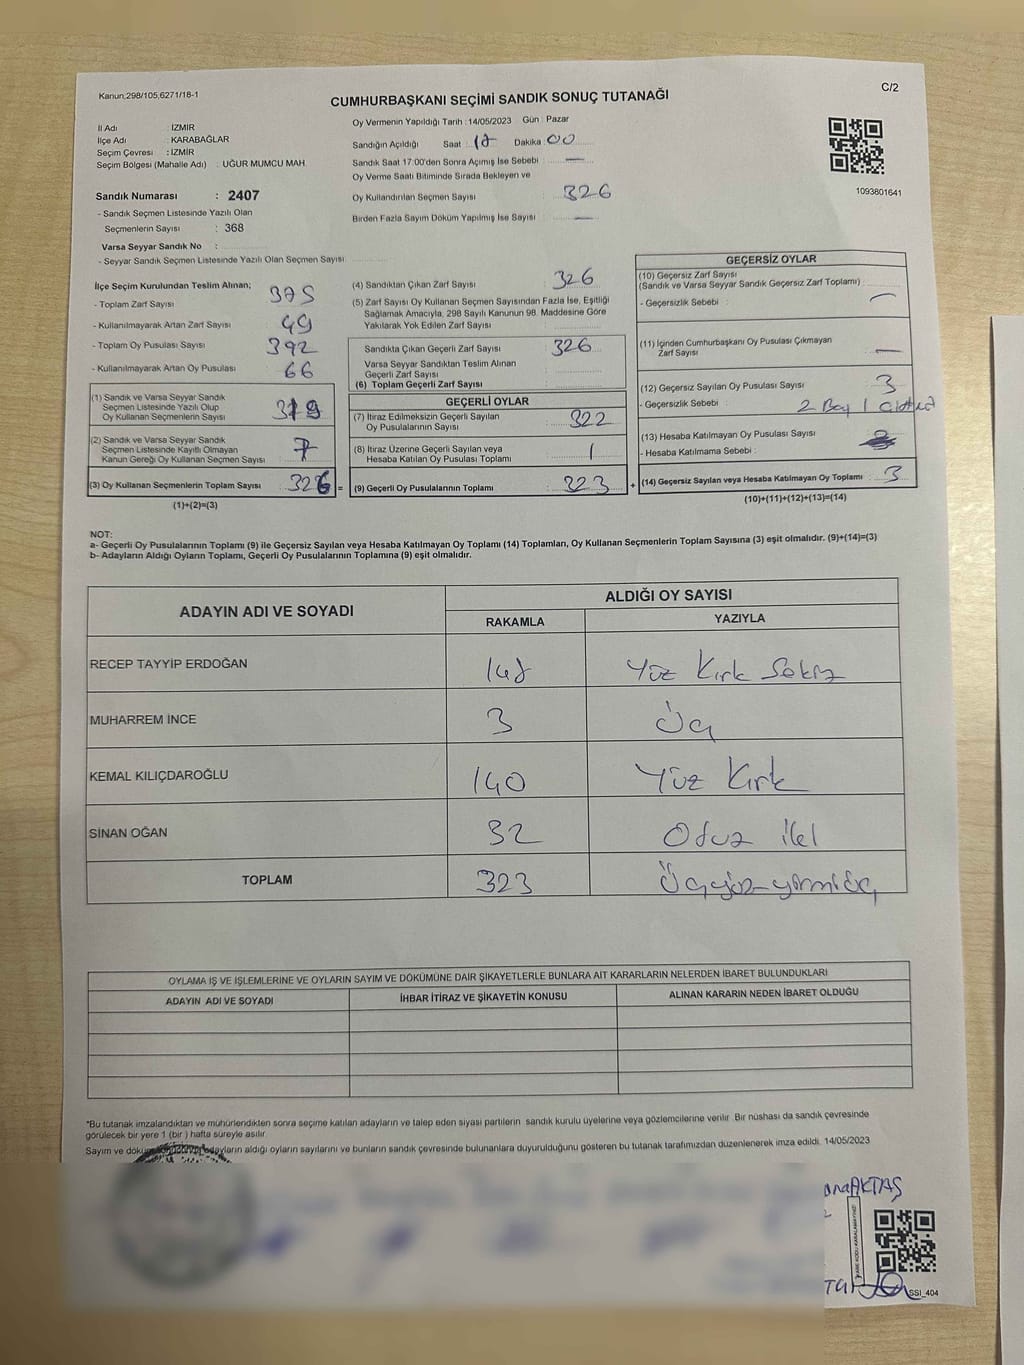 Kanun;298/105,6271/18-1
C/2
CUMHURBAŞKANI SEÇİMİ SANDIK SONUÇ TUTANAĞI
İl Adı : İZMİR
İlçe Adı : KARABAĞLAR
Seçim Çevresi : İZMİR
Seçim Bölgesi (Mahalle Adı) : UĞUR MUMCU MAH.
Sandık Numarası : 2407
- Sandık Seçmen Listesinde Yazılı Olan
Seçmenlerin Sayısı : 368
Varsa Seyyar Sandık No :
- Seyyar Sandık Seçmen Listesinde Yazılı Olan Seçmen Sayısı:
Oy Vermenin Yapıldığı Tarih : 14/05/2023 Gün : Pazar
Sandığın Açıldığı Saat : 18 Dakika : 00
Sandık Saat 17:00'den Sonra Açmış İse Sebebi : —
Oy Verme Saati Bitiminde Sırada Bekleyen ve
Oy Kullandırılan Seçmen Sayısı : 326
Birden Fazla Sayım Döküm Yapılmış İse Sayısı : —
1093801641
İlçe Seçim Kurulundan Teslim Alınan;
- Toplam Zarf Sayısı : 375
- Kullanılmayarak Artan Zarf Sayısı : 49
- Toplam Oy Pusulası Sayısı : 392
- Kullanılmayarak Artan Oy Pusulası : 66
(1) Sandık ve Varsa Seyyar Sandık
Seçmen Listesinde Yazılı Olup
Oy Kullanan Seçmenlerin Sayısı : 319
(2) Sandık ve Varsa Seyyar Sandık
Seçmen Listesinde Kayıtlı Olmayan
Kanun Gereği Oy Kullanan Seçmen Sayısı : 7
(3) Oy Kullanan Seçmenlerin Toplam Sayısı : 326 =
(1)+(2)=(3)
(4) Sandıktan Çıkan Zarf Sayısı : 326
(5) Zarf Sayısı Oy Kullanan Seçmen Sayısından Fazla İse, Eşitliği
Sağlamak Amacıyla, 298 Sayılı Kanunun 98. Maddesine Göre
Yakılarak Yok Edilen Zarf Sayısı :
Sandıkta Çıkan Geçerli Zarf Sayısı : 326
Varsa Seyyar Sandıktan Teslim Alınan
Geçerli Zarf Sayısı :
(6) Toplam Geçerli Zarf Sayısı :
GEÇERLİ OYLAR
(7) İtiraz Edilmeksizin Geçerli Sayılan
Oy Pusulalarının Sayısı : 322
(8) İtiraz Üzerine Geçerli Sayılan veya
Hesaba Katılan Oy Pusulası Toplamı : 1
(9) Geçerli Oy Pusulalarının Toplamı : 323 +
GEÇERSİZ OYLAR
(10) Geçersiz Zarf Sayısı
(Sandık ve Varsa Seyyar Sandık Geçersiz Zarf Toplamı) :
- Geçersizlik Sebebi : —
(11) İçinden Cumhurbaşkanı Oy Pusulası Çıkmayan
Zarf Sayısı : —
(12) Geçersiz Sayılan Oy Pusulası Sayısı : 3
- Geçersizlik Sebebi : 2 Boş 1
(13) Hesaba Katılmayan Oy Pusulası Sayısı :
- Hesaba Katılmama Sebebi :
(14) Geçersiz Sayılan veya Hesaba Katılmayan Oy Toplamı : 3
(10)+(11)+(12)+(13)=(14)
NOT:
a- Geçerli Oy Pusulalarının Toplamı (9) ile Geçersiz Sayılan veya Hesaba Katılmayan Oy Toplamı (14) Toplamları, Oy Kullanan Seçmenlerin Toplam Sayısına (3) eşit olmalıdır. (9)+(14)=(3)
b- Adayların Aldığı Oyların Toplamı, Geçerli Oy Pusulalarının Toplamına (9) eşit olmalıdır.
ADAYIN ADI VE SOYADI
ALDIĞI OY SAYISI
RAKAMLA YAZIYLA
RECEP TAYYİP ERDOĞAN 148 Yüz Kırk Sekiz
MUHARREM İNCE 3 Üç
KEMAL KILIÇDAROĞLU 140 Yüz Kırk
SİNAN OĞAN 32 Otuz iki
TOPLAM 323 Üçyüz yirmiüç
OYLAMA İŞ VE İŞLEMLERİNE VE OYLARIN SAYIM VE DÖKÜMÜNE DAİR ŞİKAYETLERLE BUNLARA AİT KARARLARIN NELERDEN İBARET BULUNDUKLARI
ADAYIN ADI VE SOYADI İHBAR İTİRAZ VE ŞİKAYETİN KONUSU ALINAN KARARIN NEDEN İBARET OLDUĞU
*Bu tutanak imzalandıktan ve mühürlendikten sonra seçime katılan adayların ve talep eden siyasi partilerin sandık kurulu üyelerine veya gözlemcilerine verilir. Bir nüshası da sandık çevresinde
görülecek bir yere 1 (bir) hafta süreyle asılır.
Sayım ve döküm adayların aldığı oyların sayılarını ve bunların sandık çevresinde bulunanlara duyurulduğunu gösteren bu tutanak tarafımızdan düzenlenerek imza edildi. 14/05/2023
AKTAŞ
SSI_404